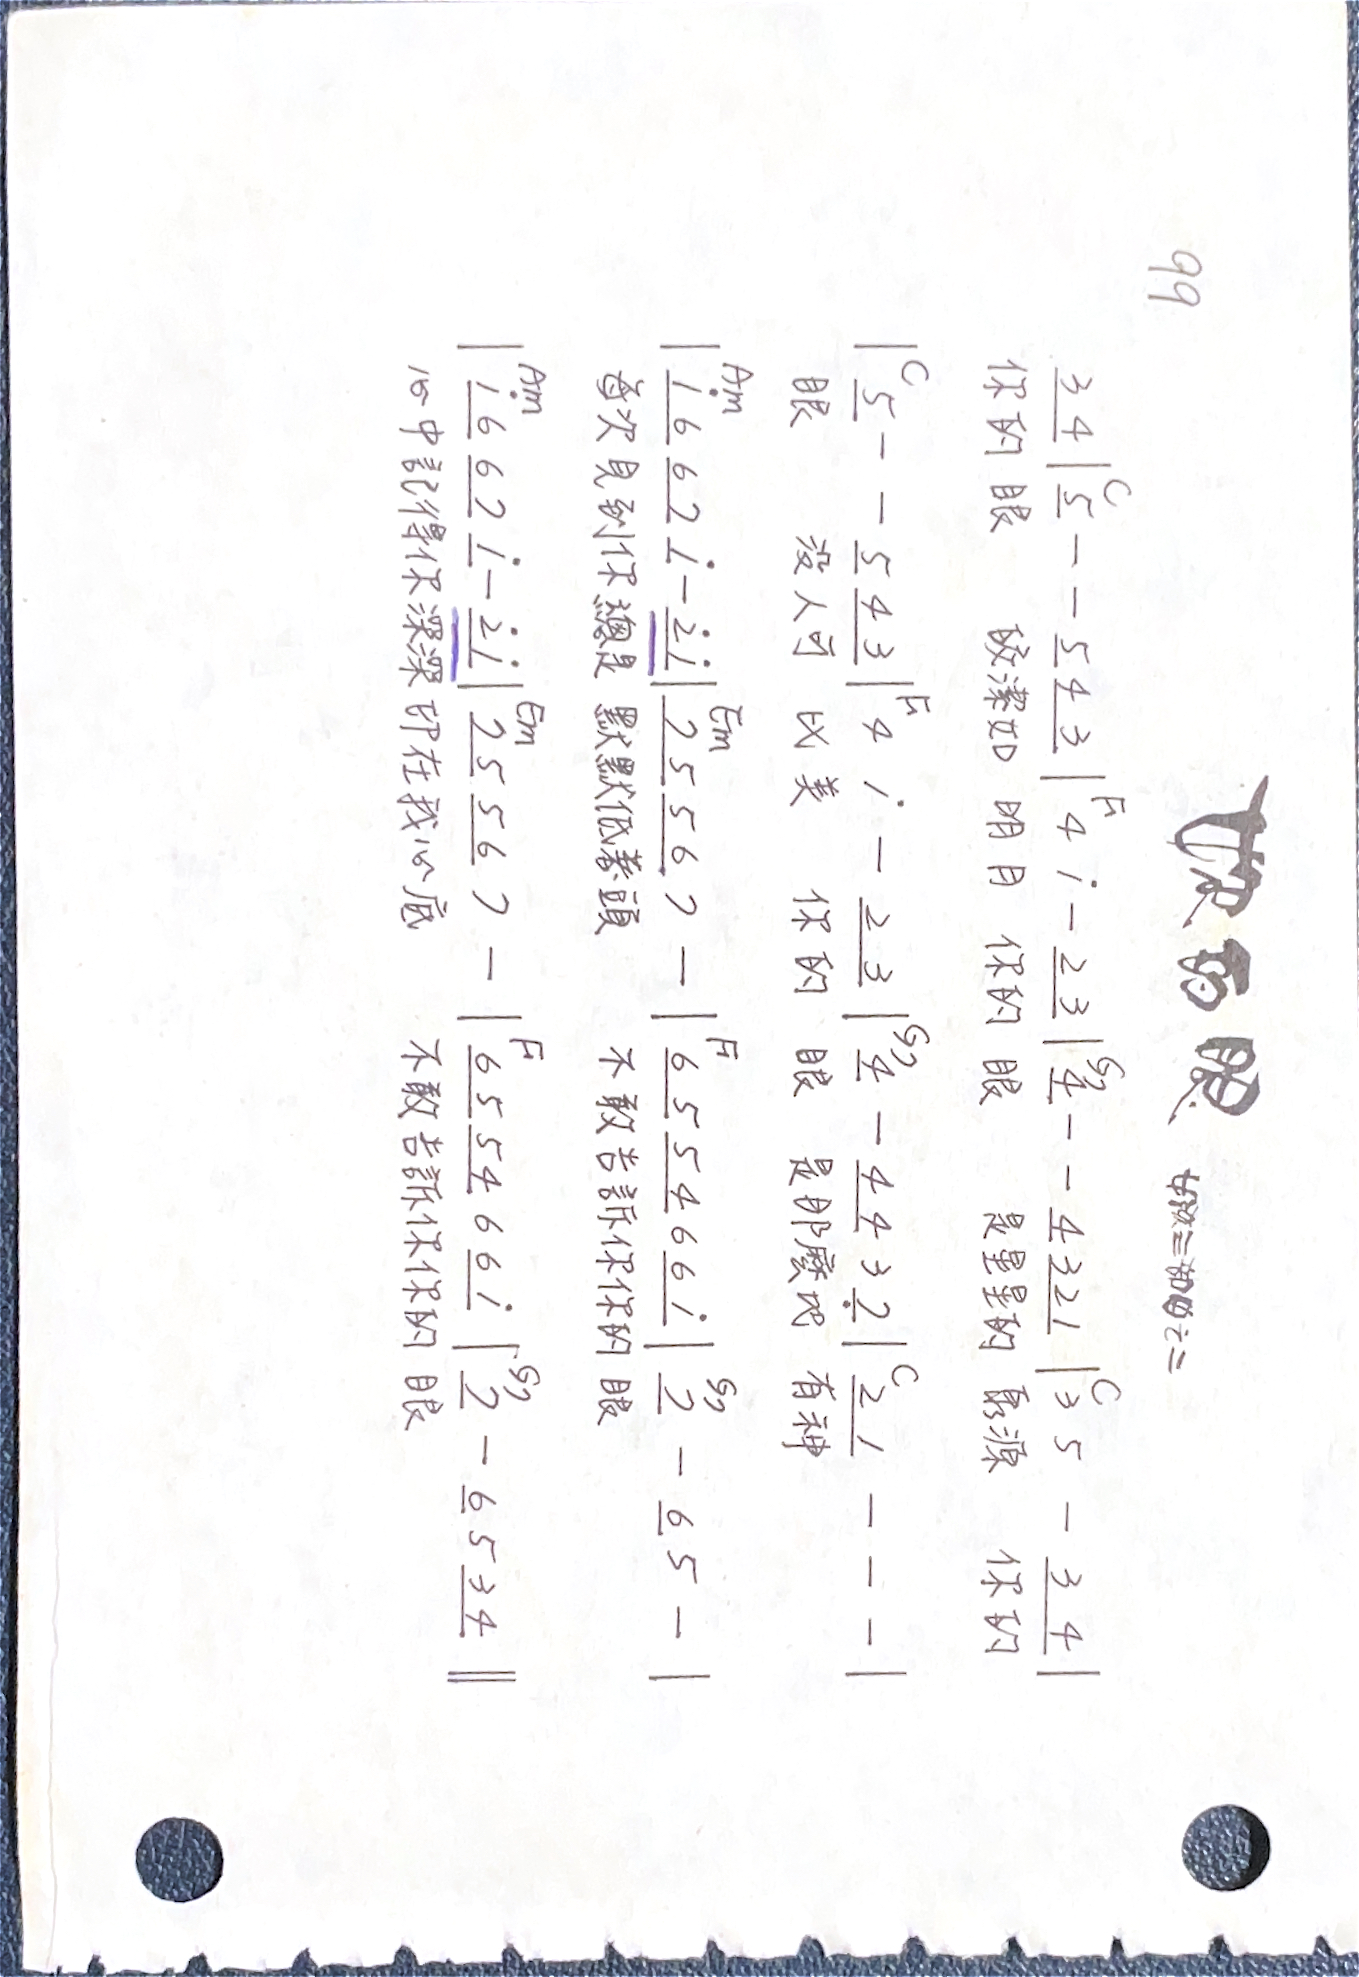 你的眼 女孩三部曲之二
99
C F G7 C
3 4 | 5 - - 5 4 3 | 4 i - 2 3 | 4 - - 4 3 2 1 | 3 5 - 3 4 |
你的 眼 皎潔如 明月 你的 眼 是星星的 泉源 你的
C F G7 C
| 5 - - 5 4 3 | 4 i - 2 3 | 4 - 4 4 3 7̣ | 2 1 - - - |
眼 没人可 比美 你的 眼 是那麼地 有神
Am Em F G7
| i 6 6 7 i - 2̇ i | 7 5 5 6 7 - | 6 5 5 4 6 6 i | 7 - 6 5 - |
每次見到你總是 默默低著頭 不敢告訴你你的 眼
Am Em F G7
| i 6 6 7 i - 2̇ i | 7 5 5 6 7 - | 6 5 5 4 6 6 i | 7 - 6 5 3 4 ‖
心中記得你深深 印在我心底 不敢告訴你你的 眼